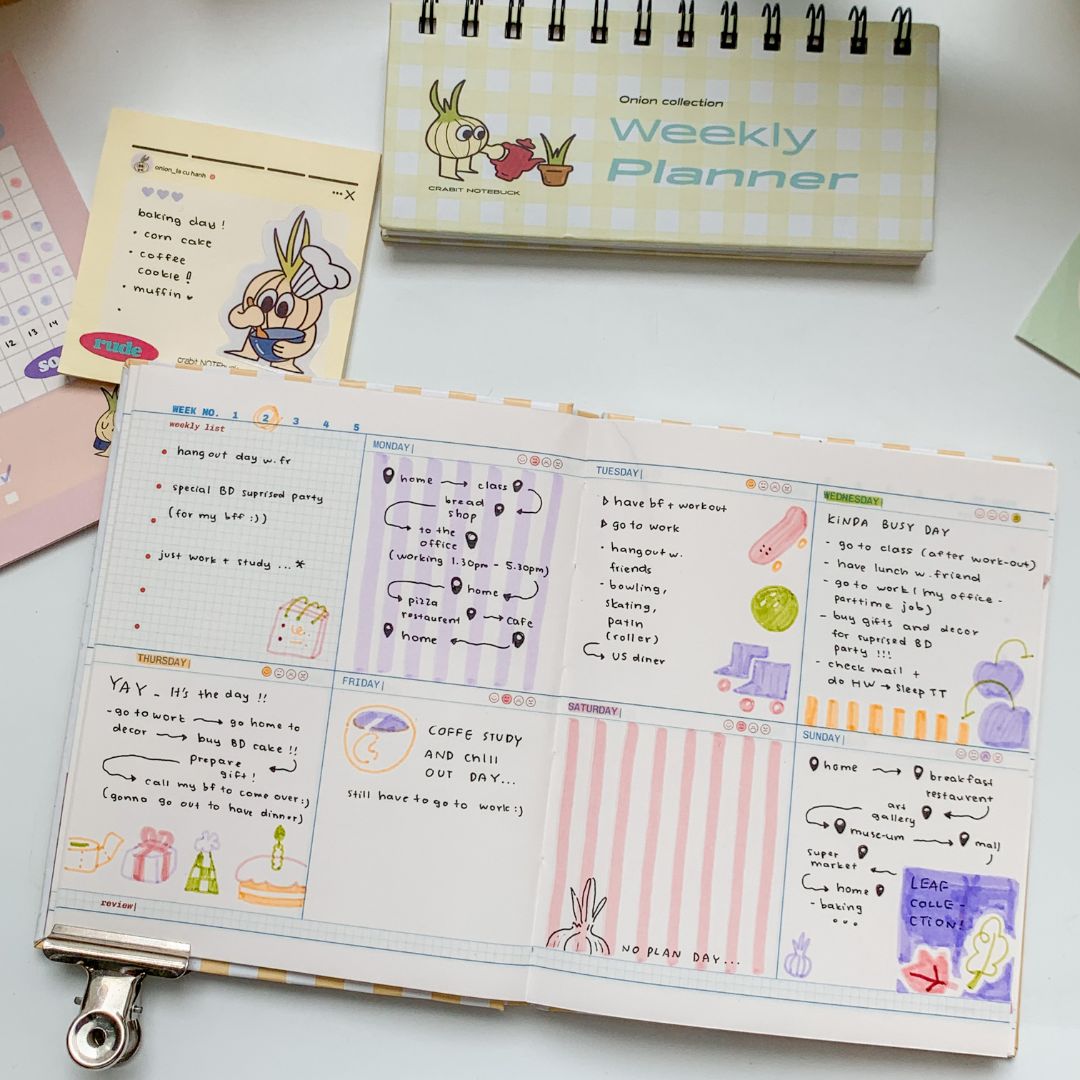 Onion collection
Weekly
Planner
CRABIT NOTEBUCK
onion_la cu hanh
baking day!
• corn cake
• coffee
cookie!!
• muffin
•
rude
crabit NOTEbuck
so
12 13 14
WEEK NO. 1 2 3 4 5
weekly list
• hang out day w. fr
• special BD suprised party
• (for my bff :))
• just work + study ... *
MONDAY|
home → class
bread
shop
to the
office
(working 1.30pm - 5.30pm)
home
pizza
restaurent → cafe
home
TUESDAY|
have bf + workout
go to work
• hangout w.
friends
- bowling,
skating,
patin
(roller)
US diner
WEDNESDAY|
KINDA BUSY DAY
- go to class (after work-out)
- have lunch w. friend
- go to work ( my office -
parttime job)
- buy gifts and decor
for suprised BD
party !!!
- check mail +
do HW → sleep TT
THURSDAY|
YAY - It's the day !!
- go to work → go home to
decor → buy BD cake !!
Prepare
gift!
call my bf to come over :)
(gonna go out to have dinner)
review|
FRIDAY|
COFFE STUDY
AND chill
OUT DAY...
still have to go to work :)
SATURDAY|
NO PLAN DAY...
SUNDAY|
home → breakfast
restaurent
art
gallery
muse-um → mall
super
market
home
- baking
LEAF
COLLE-
CTION!